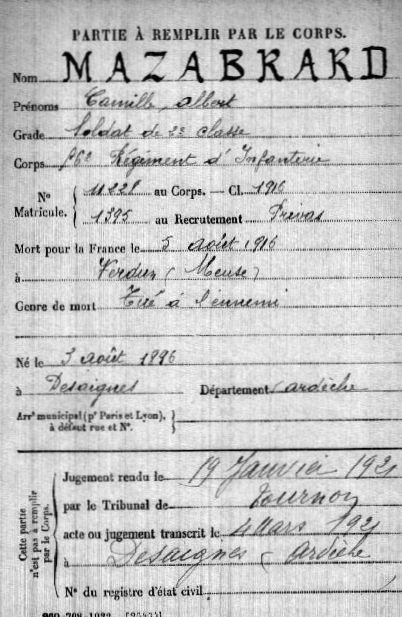 PARTIE À REMPLIR PAR LE CORPS.
Nom MAZABRARD
Prénoms Camille, Albert
Grade Soldat de 2e classe
Corps Régiment d'Infanterie
N° Matricule. { 11221 au Corps. — Cl. 1916
1395 au Recrutement Privas
Mort pour la France le 5 août 1916
à Verdun (Meuse)
Genre de mort Tué à l'ennemi
Né le 3 août 1896
à Desaignes Département Ardèche
Arrt municipal (pr Paris et Lyon),
à défaut rue et N°.
Cette partie n'est pas à remplir par le Corps.
Jugement rendu le 19 Janvier 1921
par le Tribunal de Tournon
acte ou jugement transcrit le 4 Mars 1921
à Desaignes (Ardèche
N° du registre d'état civil